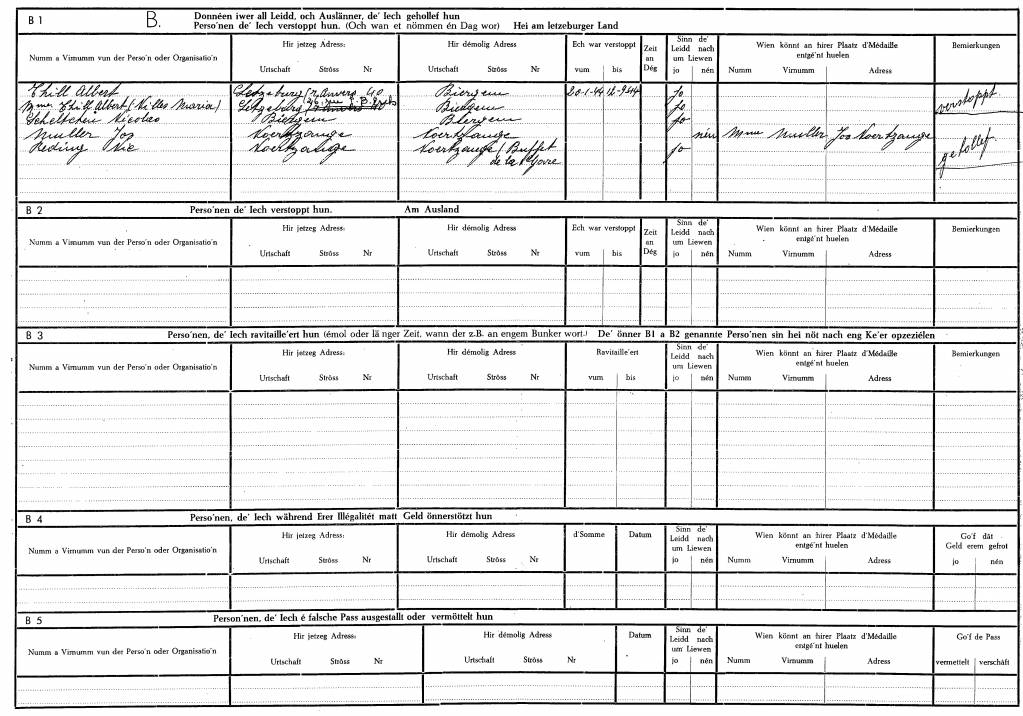 B 1 B. Donnéen iwer all Leidd, och Auslänner, de' Iech gehollef hun
Perso'nen de' Iech verstoppt hun. (Och wan et nömmen én Dag wor) Hei am letzeburger Land
Numm a Virnumm vun der Perso'n oder Organisatio'n
Hir jetzeg Adress:
Urtschaft Ströss Nr
Hir démolig Adress
Urtschaft Ströss Nr
Ech war verstoppt
vum bis
Zeit
an
Dég
Sinn de'
Leidd nach
um Liewen
jo nén
Wien könnt an hirer Plaatz d'Médaille
entgé'nt huelen
Numm Virnumm Adress
Bemierkungen
Thill Albert Letzeburg r. Anvers 40 Biergem 20-1-44 12-9-44 jo
Mme Thill Albert (Nilles Maria) Letzeburg Biergem jo verstoppt.
Scheltchen Nicolas Biergem Biergem jo
Muller Jos Noertzange Noertzange nén Mme Muller Jos Noertzange
Reding Nic Noertzange Noertzange / Buffet jo gehollef.
de la Gare
B 2 Perso'nen de' Iech verstoppt hun. Am Ausland
Numm a Virnumm vun der Perso'n oder Organisatio'n
Hir jetzeg Adress:
Urtschaft Ströss Nr
Hir démolig Adress
Urtschaft Ströss Nr
Ech war verstoppt
vum bis
Zeit
an
Dég
Sinn de'
Leidd nach
um Liewen
jo nén
Wien könnt an hirer Plaatz d'Médaille
entgé'nt huelen
Numm Virnumm Adress
Bemierkungen
B 3 Perso'nen, de' Iech ravitaille'ert hun (émol oder lä nger Zeit, wann der z.B. an engem Bunker wort.) De' önner B1 a B2 genannte Perso'nen sin hei nöt nach eng Ke'er opzeziélen
Numm a Virnumm vun der Perso'n oder Organisatio'n
Hir jetzeg Adress:
Urtschaft Ströss Nr
Hir démolig Adress
Urtschaft Ströss Nr
Ravitaille'ert
vum bis
Sinn de'
Leidd nach
um Liewen
jo nén
Wien könnt an hirer Plaatz d'Médaille
entgé'nt huelen
Numm Virnumm Adress
Bemierkungen
B 4 Perso'nen, de' Iech während Erer Illégalitét matt Geld önnerstötzt hun
Numm a Virnumm vun der Perso'n oder Organisatio'n
Hir jetzeg Adress:
Urtschaft Ströss Nr
Hir démolig Adress
Urtschaft Ströss Nr
d'Somme
Datum
Sinn de'
Leidd nach
um Liewen
jo nén
Wien könnt an hirer Plaatz d'Médaille
entgé'nt huelen
Numm Virnumm Adress
Go'f dât
Geld erem gefrot
jo nén
B 5 Person'nen, de' Iech é falsche Pass ausgestallt oder vermöttelt hun
Numm a Virnumm vun der Perso'n oder Organisatio'n
Hir jetzeg Adress:
Urtschaft Ströss Nr
Hir démolig Adress:
Urtschaft Ströss Nr
Datum
Sinn de'
Leidd nach
um Liewen
jo nén
Wien könnt an hirer Plaatz d'Médaille
entgé'nt huelen
Numm Virnumm Adress
Go'f de Pass
vermettelt verschâft